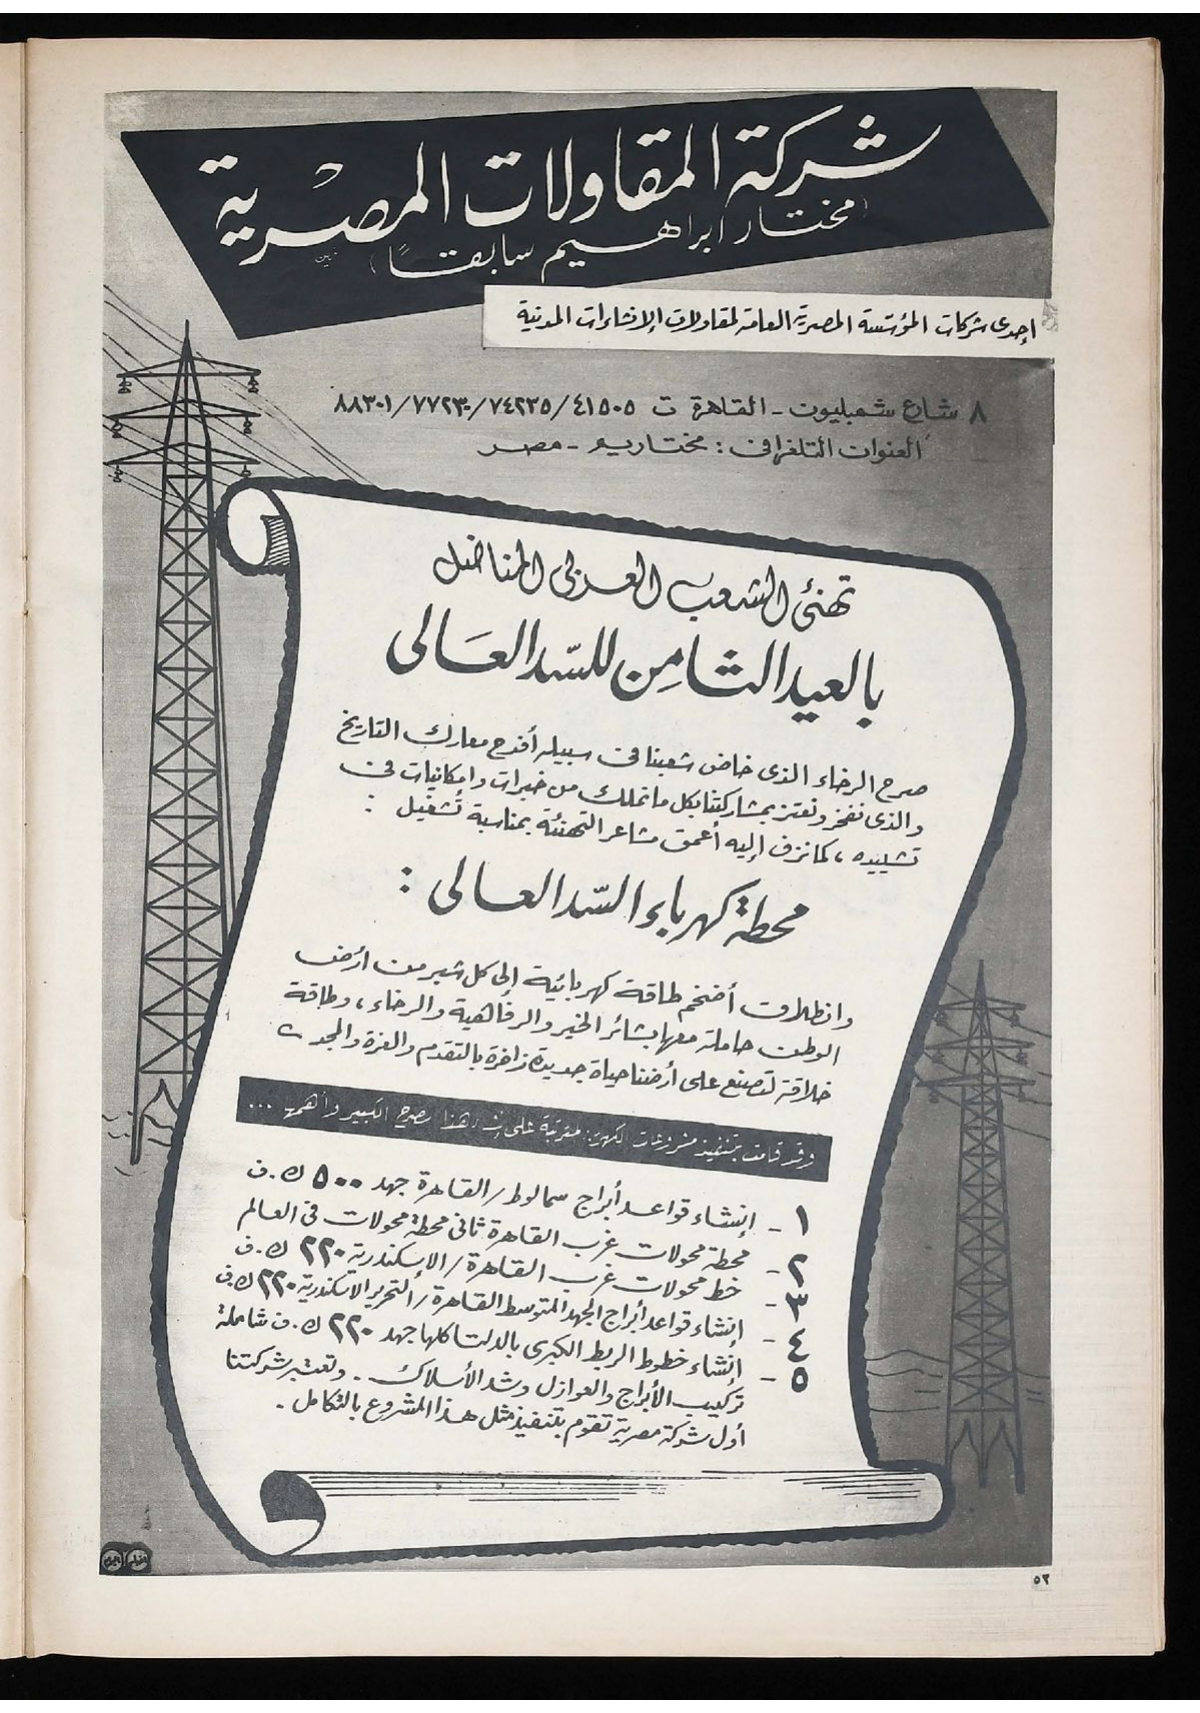 شركة المقاولات المصرية
(مختار ابراهيم سابقاً)
إحدى شركات المؤسسة المصرية العامة لمقاولات الإنشاءات المدنية
٨ شارع شمبليون - القاهرة ت ٤١٥٠٥/٧٤٢٣٥/٧٧٢٣٠/٨٨٣٠١
العنوان التلغرافى : مختاريم - مصر
تهنئ الشعب العربى المناضل
بالعيد الثامن للسّد العَالى
صرح الرخاء الذى خاض شعبنا فى سبيله أفدح معارك التاريخ
والذى نفخر ونعتز بمشاركتنا بكل ما نملك من خبرات وامكانيات فى
تشييده ، كما نزف إليه أعمق مشاعر التهنئة بمناسبة تشغيل :
محطة كهرباء السّد العالى :
وانطلاق أضخم طاقة كهربائية إلى كل شبر من أرض
الوطن حاملة معها بشائر الخير والرفاهية والرخاء ، وطاقة
خلاقة لتصنع على أرضنا حياة جديدة زاخرة بالتقدم والعزة والمجد
وقد قامت بتنفيذ مشروعات الكهربة مترتبة على هذا الصرح الكبير وأهمها ...
١ - إنشاء قواعد أبراج سمالوط/القاهرة جهد ٥٠٠ ك.ف
٢ - محطة محولات غرب القاهرة ثانى محطة محولات فى العالم
٣ - خط محولات غرب القاهرة/الإسكندرية ٢٢٠ ك.ف
٤ - إنشاء قواعد أبراج الجهد المتوسط القاهرة/التحرير الاسكندرية ٢٢٠ ك.ف
٥ - إنشاء خطوط الربط الكبرى بالدلتا كلها جهد ٢٢٠ ك.ف شاملة
تركيب الأبراج والعوازل وشد الأسلاك .. وتعتبر شركتنا
أول شركة مصرية تقوم بتنفيذ مثل هذا المشروع بالتكامل .
٥٢